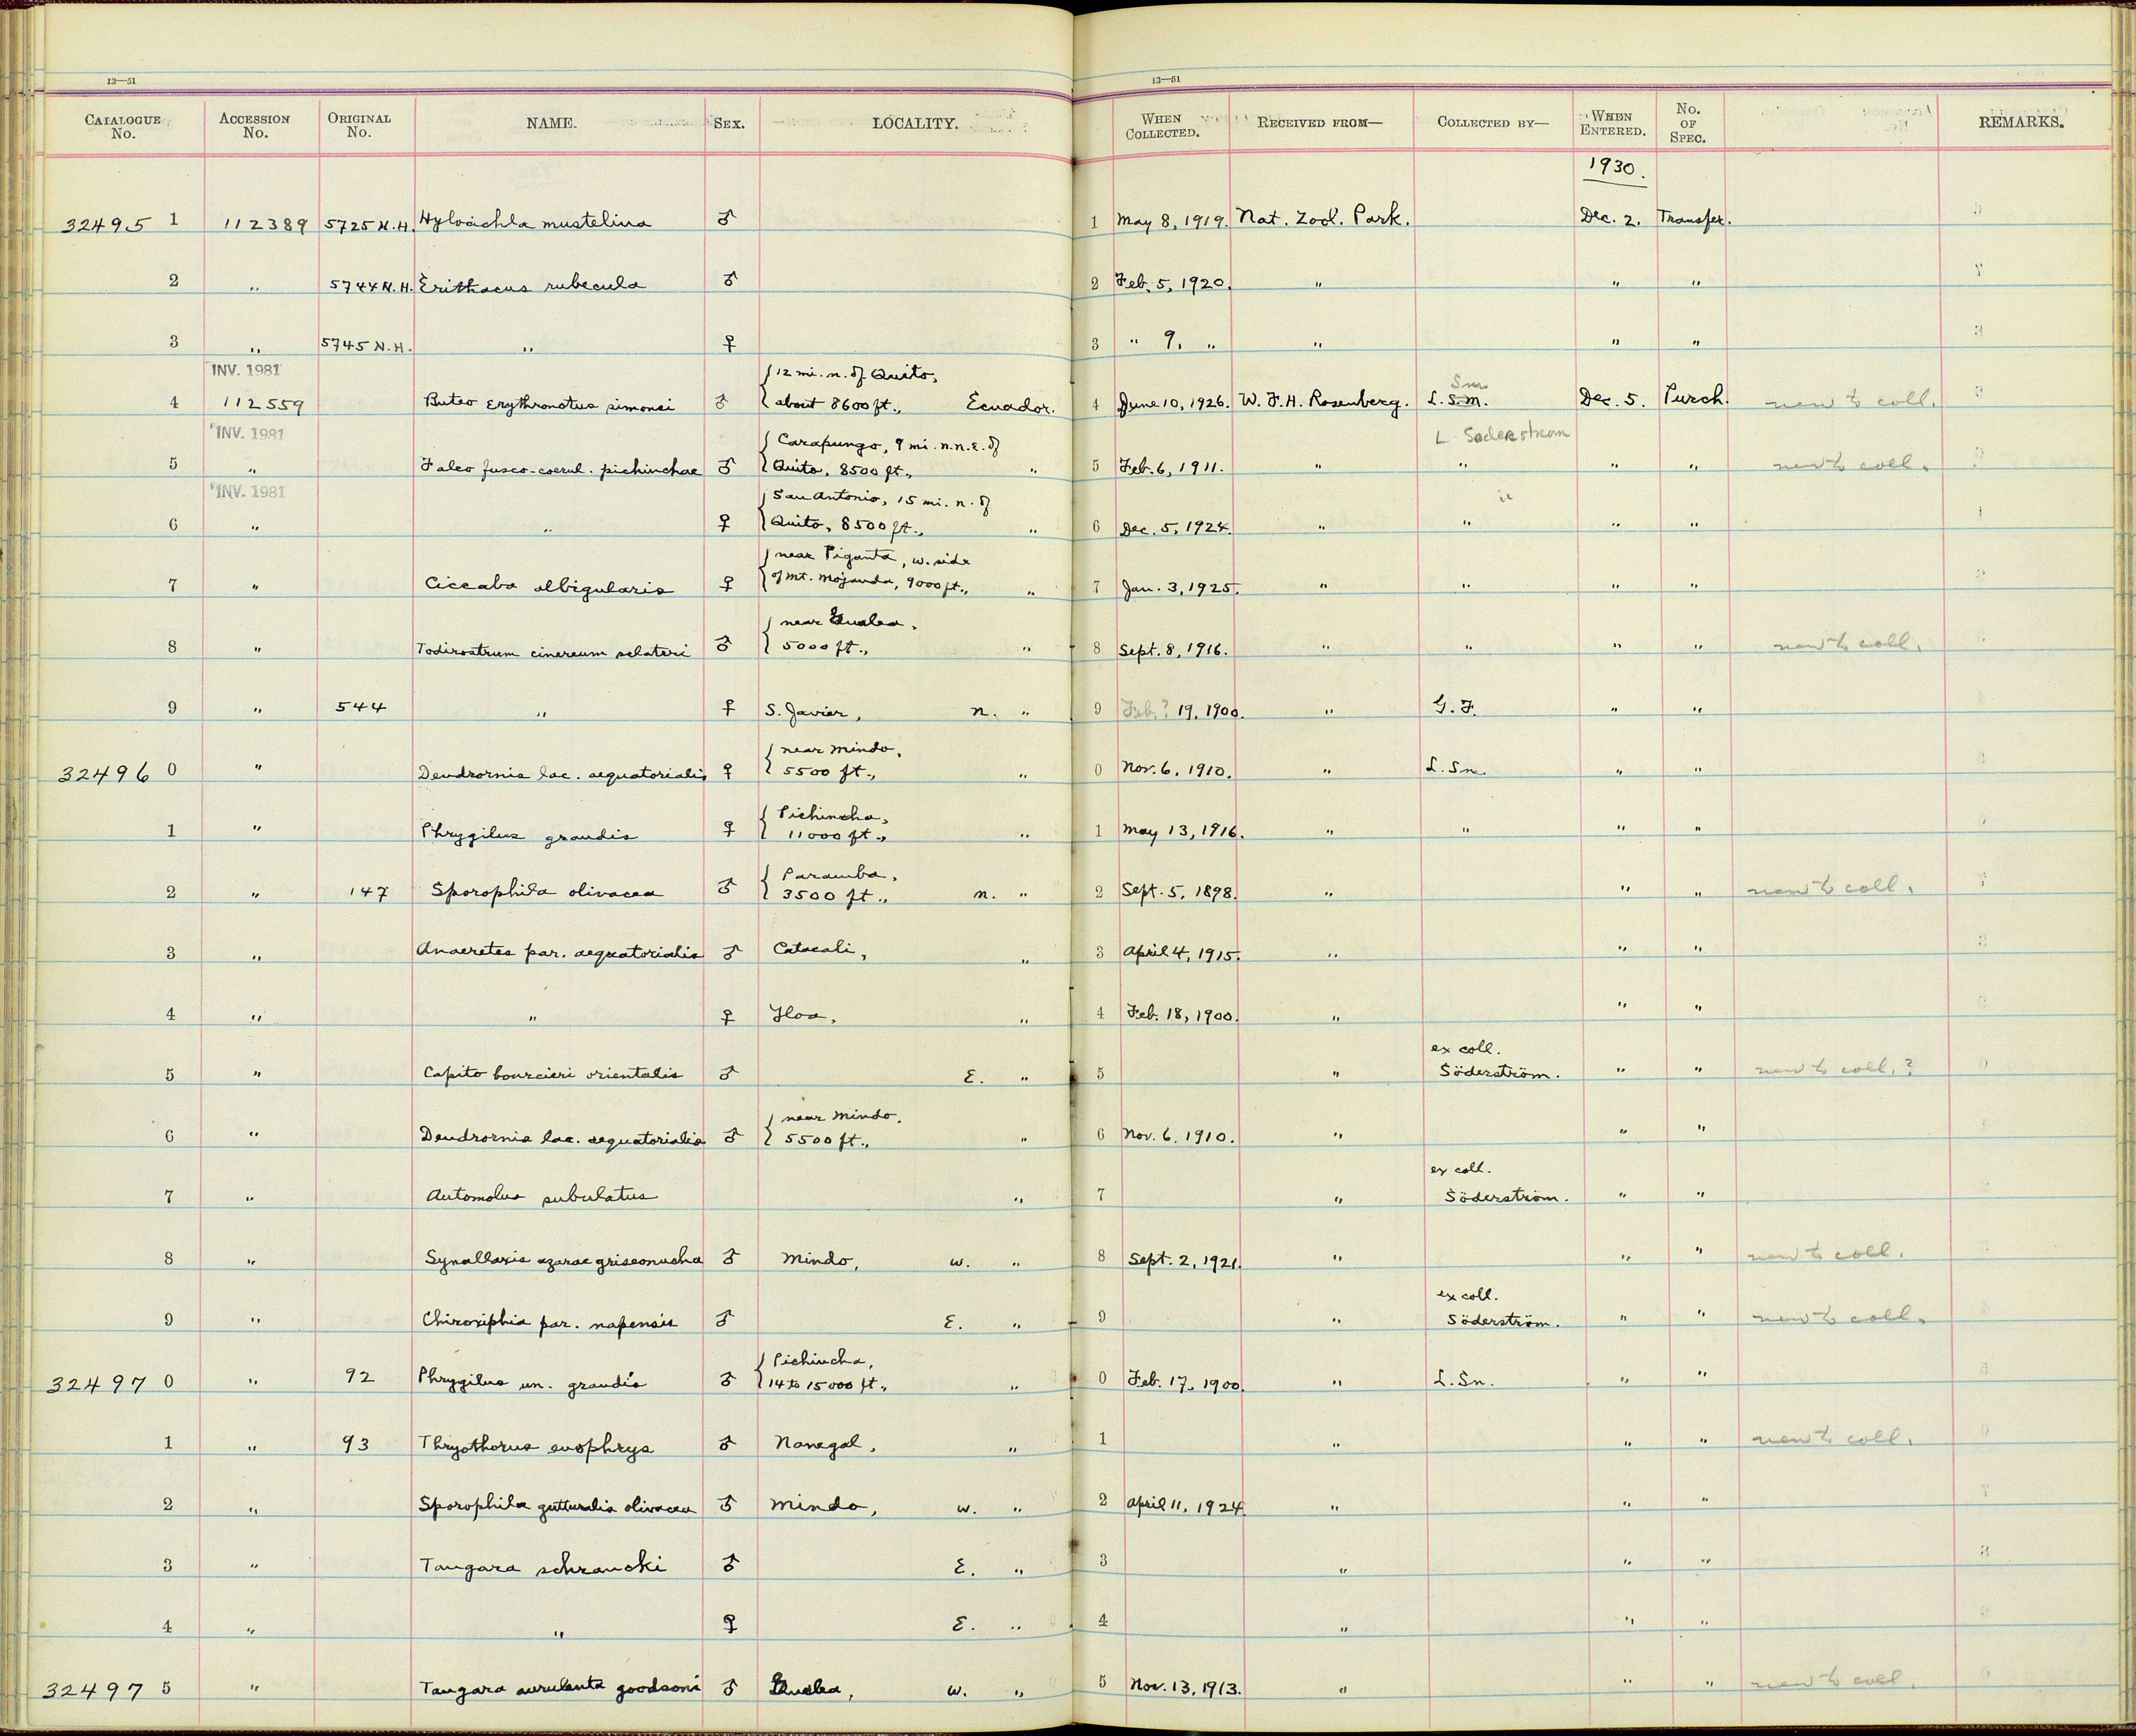 13—51
13—51
CATALOGUE No. ACCESSION No. ORIGINAL No. NAME. SEX. LOCALITY. WHEN COLLECTED. RECEIVED FROM— COLLECTED BY— WHEN ENTERED. No. OF SPEC. REMARKS.
1930.
32495 1 112389 5725 N.H. Hylocichla mustelina ♂ 1 May 8, 1919. Nat. Zool. Park. Dec. 2. Transfer.
2 " 5744 N.H. Erithacus rubecula ♂ 2 Feb. 5, 1920. " " "
3 " 5745 N.H. " ♀ 3 " 9, " " " "
INV. 1981 12 mi. n. of Quito, Sn.
4 112559 Buteo erythronotus simonsi ♂ about 8600 ft., Ecuador. 4 June 10, 1926. W. F. H. Rosenberg. L. S.M. Dec. 5. Purch. new to coll.
INV. 1981 Carapungo, 9 mi. n.n.e. of L. Soderstrom
5 " Falco fusco-coerul. pichinchae ♂ Quito, 8500 ft., " 5 Feb. 6, 1911. " " " " new to coll.
INV. 1981 San Antonio, 15 mi. n. of "
6 " " ♀ Quito, 8500 ft., " 6 Dec. 5, 1924. " " " "
near Piganta, w. side
7 " Ciccaba albigularis ♀ of Mt. Mojanda, 9000 ft., " 7 Jan. 3, 1925. " " " "
near Gualea,
8 " Todirostrum cinereum sclateri ♂ 5000 ft., " 8 Sept. 8, 1916. " " " " new to coll.
9 " 544 " ♀ S. Javier, n. " 9 Feb.? 19, 1900. " G. F. " "
near Mindo,
32496 0 " Dendrornis lac. aequatorialis ♀ 5500 ft., " 0 Nov. 6, 1910. " L. Sn. " "
Pichincha,
1 " Phrygilus grandis ♀ 11000 ft., " 1 May 13, 1916. " " " "
Paramba,
2 " 147 Sporophila olivacea ♂ 3500 ft., n. " 2 Sept. 5, 1898. " " " new to coll.
3 " Anaeretes par. aequatorialis ♂ Catacali, " 3 April 4, 1915. " " "
4 " " ♀ Iloa, " 4 Feb. 18, 1900. " " "
ex coll.
5 " Capito bourcieri orientalis ♂ E. " 5 " Söderström. " " new to coll.?
near Mindo,
6 " Dendrornis lac. aequatorialis ♂ 5500 ft., " 6 Nov. 6, 1910. " " "
ex coll.
7 " Automolus subulatus " 7 " Söderström. " "
8 " Synallaxis azarae griseonucha ♂ Mindo, w. " 8 Sept. 2, 1921. " " " new to coll.
ex coll.
9 " Chiroxiphia par. napensis ♂ E. " 9 " Söderström. " " new to coll.
Pichincha,
32497 0 " 92 Phrygilus un. grandis ♂ 14 to 15000 ft., " 0 Feb. 17, 1900. " L. Sn. " "
1 " 93 Thryothorus euophrys ♂ Nanegal, " 1 " " " new to coll.
2 " Sporophila gutturalis olivacea ♂ Mindo, w. " 2 April 11, 1924. " " "
3 " Tangara schrancki ♂ E. " 3 " " "
4 " " ♀ E. " 4 " " "
32497 5 " Tangara aurulenta goodsoni ♂ Gualea, w. " 5 Nov. 13, 1913. " " " new to coll.